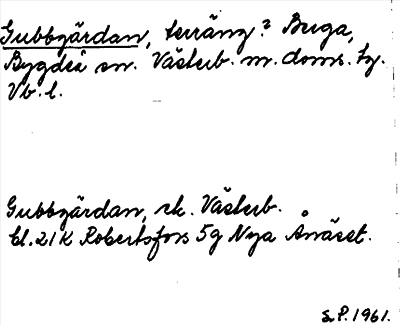 Gubbgärdan, terräng? Buga,
Bygdeå sn. Västerb. m. doms. tg.
Vb. l.
Gubbgärdan, sk. Västerb.
bl. 21K Robertsfors 5g Nya Ånäset.
S.P. 1961.